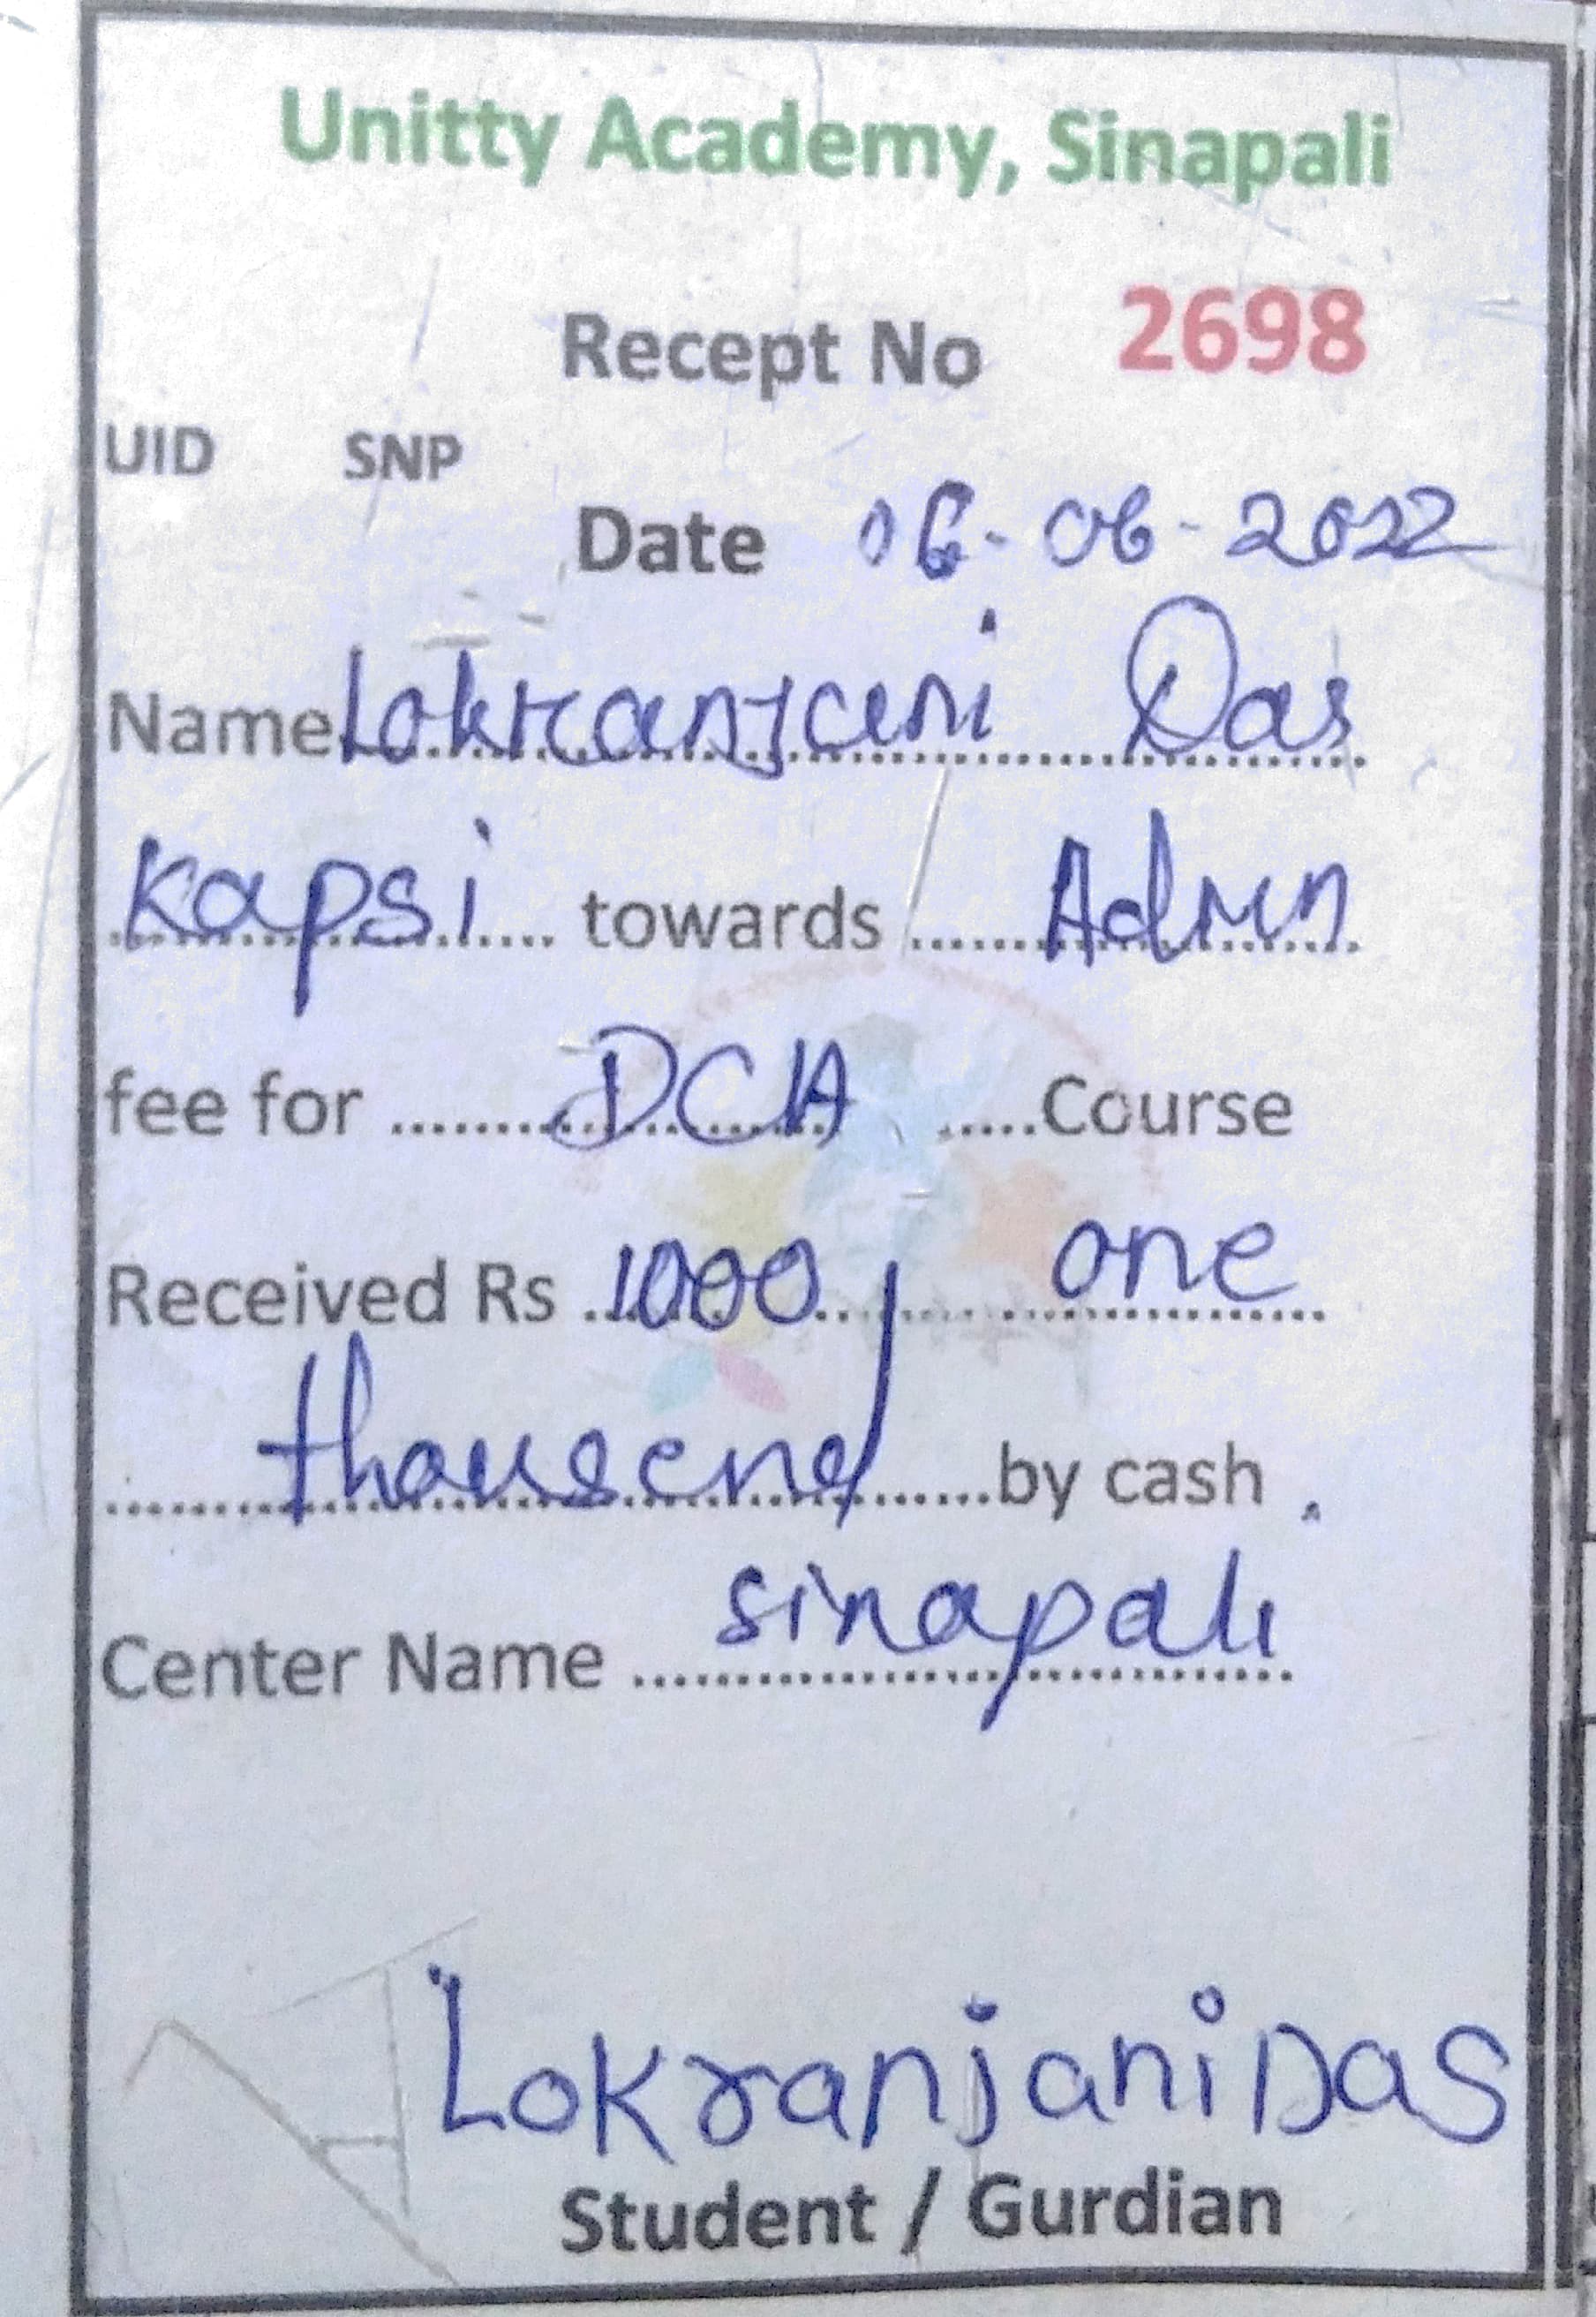 Unitty Academy, Sinapali
Recept No 2698
UID SNP
Date 06-06-2022
Name Lokranjani Das
Kapsi towards Admn
fee for DCA Course
Received Rs 1000/ one
thousend by cash.
Center Name sinapali
Lokranjani Das
Student / Gurdian